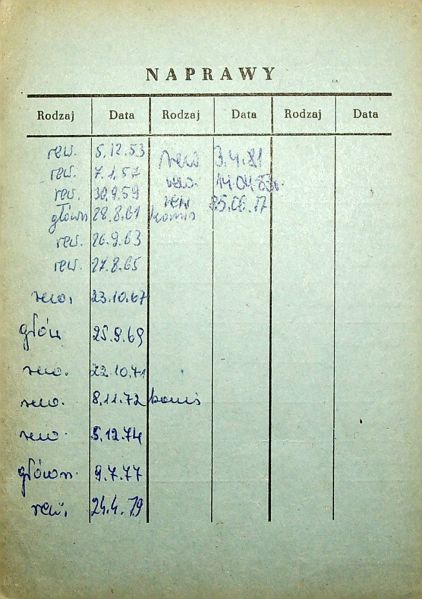 NAPRAWY
Rodzaj Data Rodzaj Data Rodzaj Data
rew. 5.12.53 rew. 3.4.81
rew. 7.1.57 rew. 14.04.83r.
rew. 30.9.59 rew
główn 28.8.61 komis
rew. 26.9.63
rew. 27.8.65
rew. 23.10.67
główn 25.9.69
rew. 22.10.71
rew. 8.11.72 komis
rew. 5.12.74
główn. 9.7.77
rew. 24.4.79